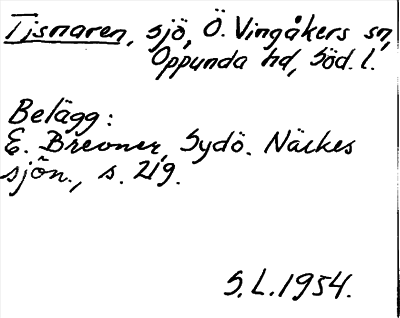 Tisnaren, sjö, Ö. Vingåkers sn,
Oppunda hd, Söd. l.
Belägg:
E. Brevner, Sydö. Närkes
sjön., s. 219.
S.L. 1954.